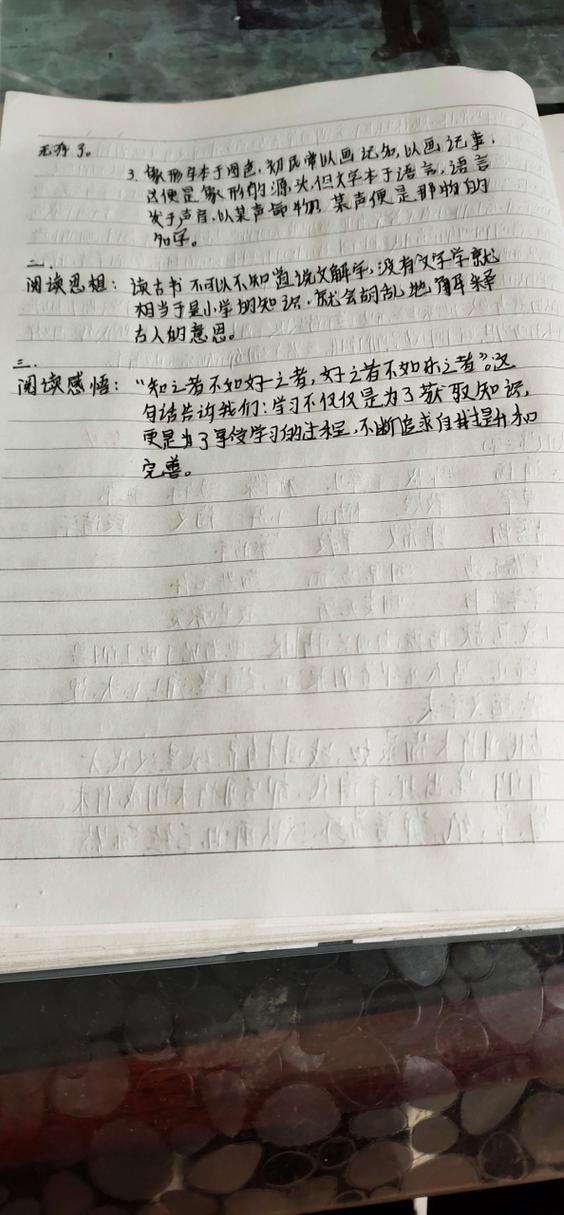 无存了。
3. 象形字本于图色,初民常以画记物,以画记事,
这便是象形的源头,但文字本于语言,语言
发于声音,以某声命物,某声便是那物的
名字。
二.
阅读思想:读古书不可以不知道说文解字,没有文字学就
相当于是小学的知识,就会胡乱地解释
古人的意思。
三.
阅读感悟:“知之者不如好之者,好之者不如乐之者”。这
句话告诉我们:学习不仅仅是为了获取知识,
更是为了享受学习的过程,不断追求自我提升和
完善。